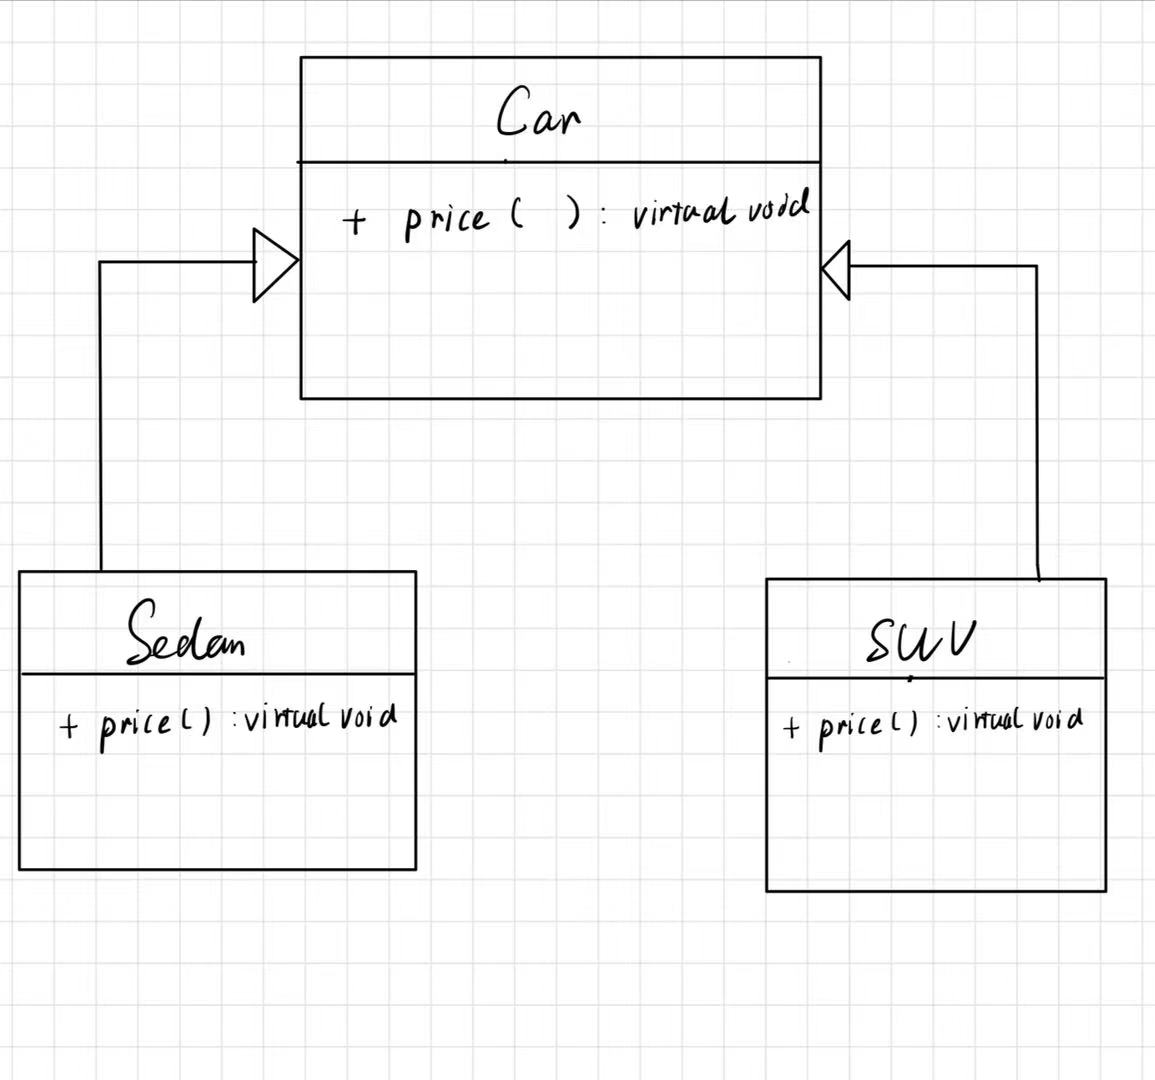 Car
+ price ( ) : virtual void
Sedan
+ price() : virtual void
SUV
+ price() : virtual void